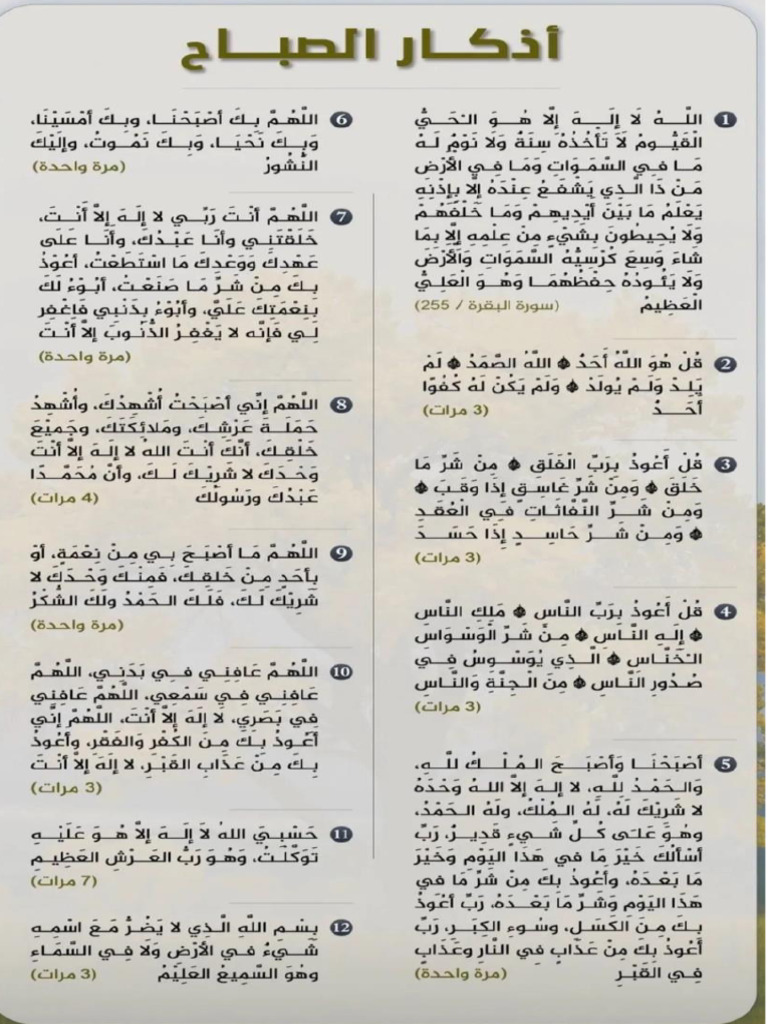 أذكار الصباح
1 اللَّهُ لَا إِلَهَ إِلَّا هُوَ الْحَيُّ
الْقَيُّومُ لَا تَأْخُذُهُ سِنَةٌ وَلَا نَوْمٌ لَهُ
مَا فِي السَّمَوَاتِ وَمَا فِي الْأَرْضِ
مَنْ ذَا الَّذِي يَشْفَعُ عِنْدَهُ إِلَّا بِإِذْنِهِ
يَعْلَمُ مَا بَيْنَ أَيْدِيهِمْ وَمَا خَلْفَهُمْ
وَلَا يُحِيطُونَ بِشَيْءٍ مِنْ عِلْمِهِ إِلَّا بِمَا
شَاءَ وَسِعَ كُرْسِيُّهُ السَّمَوَاتِ وَالْأَرْضَ
وَلَا يَئُودُهُ حِفْظُهُمَا وَهُوَ الْعَلِيُّ
الْعَظِيمُ (سورة البقرة / 255)
2 قُلْ هُوَ اللَّهُ أَحَدٌ ۞ اللَّهُ الصَّمَدُ ۞ لَمْ
يَلِدْ وَلَمْ يُولَدْ ۞ وَلَمْ يَكُنْ لَهُ كُفُوًا
أَحَدٌ (3 مرات)
3 قُلْ أَعُوذُ بِرَبِّ الْفَلَقِ ۞ مِنْ شَرِّ مَا
خَلَقَ ۞ وَمِنْ شَرِّ غَاسِقٍ إِذَا وَقَبَ ۞
وَمِنْ شَرِّ النَّفَّاثَاتِ فِي الْعُقَدِ
۞ وَمِنْ شَرِّ حَاسِدٍ إِذَا حَسَدَ
(3 مرات)
4 قُلْ أَعُوذُ بِرَبِّ النَّاسِ ۞ مَلِكِ النَّاسِ
۞ إِلَهِ النَّاسِ ۞ مِنْ شَرِّ الْوَسْوَاسِ
الْخَنَّاسِ ۞ الَّذِي يُوَسْوِسُ فِي
صُدُورِ النَّاسِ ۞ مِنَ الْجِنَّةِ وَالنَّاسِ
(3 مرات)
5 أَصْبَحْنَا وَأَصْبَحَ الْمُلْكُ لِلَّهِ،
وَالْحَمْدُ لِلَّهِ، لا إِلَهَ إِلاَّ اللهُ وَحْدَهُ
لا شَرِيكَ لَهُ، لَهُ الْمُلْكُ، وَلَهُ الْحَمْدُ،
وَهُوَ عَلَى كُلِّ شَيْءٍ قَدِيرٌ، رَبِّ
أَسْأَلُكَ خَيْرَ مَا فِي هَذَا الْيَوْمِ وَخَيْرَ
مَا بَعْدَهُ، وَأَعُوذُ بِكَ مِنْ شَرِّ مَا فِي
هَذَا الْيَوْمِ وَشَرِّ مَا بَعْدَهُ، رَبِّ أَعُوذُ
بِكَ مِنَ الْكَسَلِ، وَسُوءِ الْكِبَرِ، رَبِّ
أَعُوذُ بِكَ مِنْ عَذَابٍ فِي النَّارِ وَعَذَابٍ
فِي الْقَبْرِ (مرة واحدة)
6 اللَّهُمَّ بِكَ أَصْبَحْنَا، وَبِكَ أَمْسَيْنَا،
وَبِكَ نَحْيَا، وَبِكَ نَمُوتُ، وَإِلَيْكَ
النُّشُورُ (مرة واحدة)
7 اللَّهُمَّ أَنْتَ رَبِّي لا إِلَهَ إِلاَّ أَنْتَ،
خَلَقْتَنِي وَأَنَا عَبْدُكَ، وَأَنَا عَلَى
عَهْدِكَ وَوَعْدِكَ مَا اسْتَطَعْتُ، أَعُوْذُ
بِكَ مِنْ شَرِّ مَا صَنَعْتُ، أَبُوْءُ لَكَ
بِنِعْمَتِكَ عَلَيَّ، وَأَبُوْءُ بِذَنْبِي فَاغْفِرْ
لِي فَإِنَّه لا يَغْفِرُ الذُّنُوبَ إِلاَّ أَنْتَ
(مرة واحدة)
8 اللَّهُمَّ إِنِّي أَصْبَحْتُ أُشْهِدُكَ، وَأُشْهِدُ
حَمَلَةَ عَرْشِكَ، وَمَلائِكَتَكَ، وَجَمِيْعَ
خَلْقِكَ، أَنَّكَ أَنْتَ اللهُ لا إِلَهَ إِلاَّ أَنْتَ
وَحْدَكَ لا شَرِيْكَ لَكَ، وَأَنَّ مُحَمَّدًا
عَبْدُكَ وَرَسُوْلُكَ (4 مرات)
9 اللَّهُمَّ مَا أَصْبَحَ بِي مِنْ نِعْمَةٍ، أَوْ
بِأَحَدٍ مِنْ خَلْقِكَ، فَمِنْكَ وَحْدَكَ لا
شَرِيْكَ لَكَ، فَلَكَ الْحَمْدُ وَلَكَ الشُّكْرُ
(مرة واحدة)
10 اللَّهُمَّ عَافِنِي فِي بَدَنِي، اللَّهُمَّ
عَافِنِي فِي سَمْعِي، اللَّهُمَّ عَافِنِي
فِي بَصَرِي، لا إِلَهَ إِلاَّ أَنْتَ، اللَّهُمَّ إِنِّي
أَعُوذُ بِكَ مِنَ الْكُفْرِ وَالْفَقْرِ، وَأَعُوذُ
بِكَ مِنْ عَذَابِ الْقَبْرِ، لا إِلَهَ إِلاَّ أَنْتَ
(3 مرات)
11 حَسْبِيَ اللهُ لَا إِلَهَ إِلاَّ هُوَ عَلَيْهِ
تَوَكَّلْتُ، وَهُوَ رَبُّ الْعَرْشِ الْعَظِيمِ
(7 مرات)
12 بِسْمِ اللَّهِ الَّذِي لا يَضُرُّ مَعَ اسْمِهِ
شَيْءٌ فِي الأَرْضِ وَلا فِي السَّمَاءِ
وَهُوَ السَّمِيعُ الْعَلِيْمُ (3 مرات)